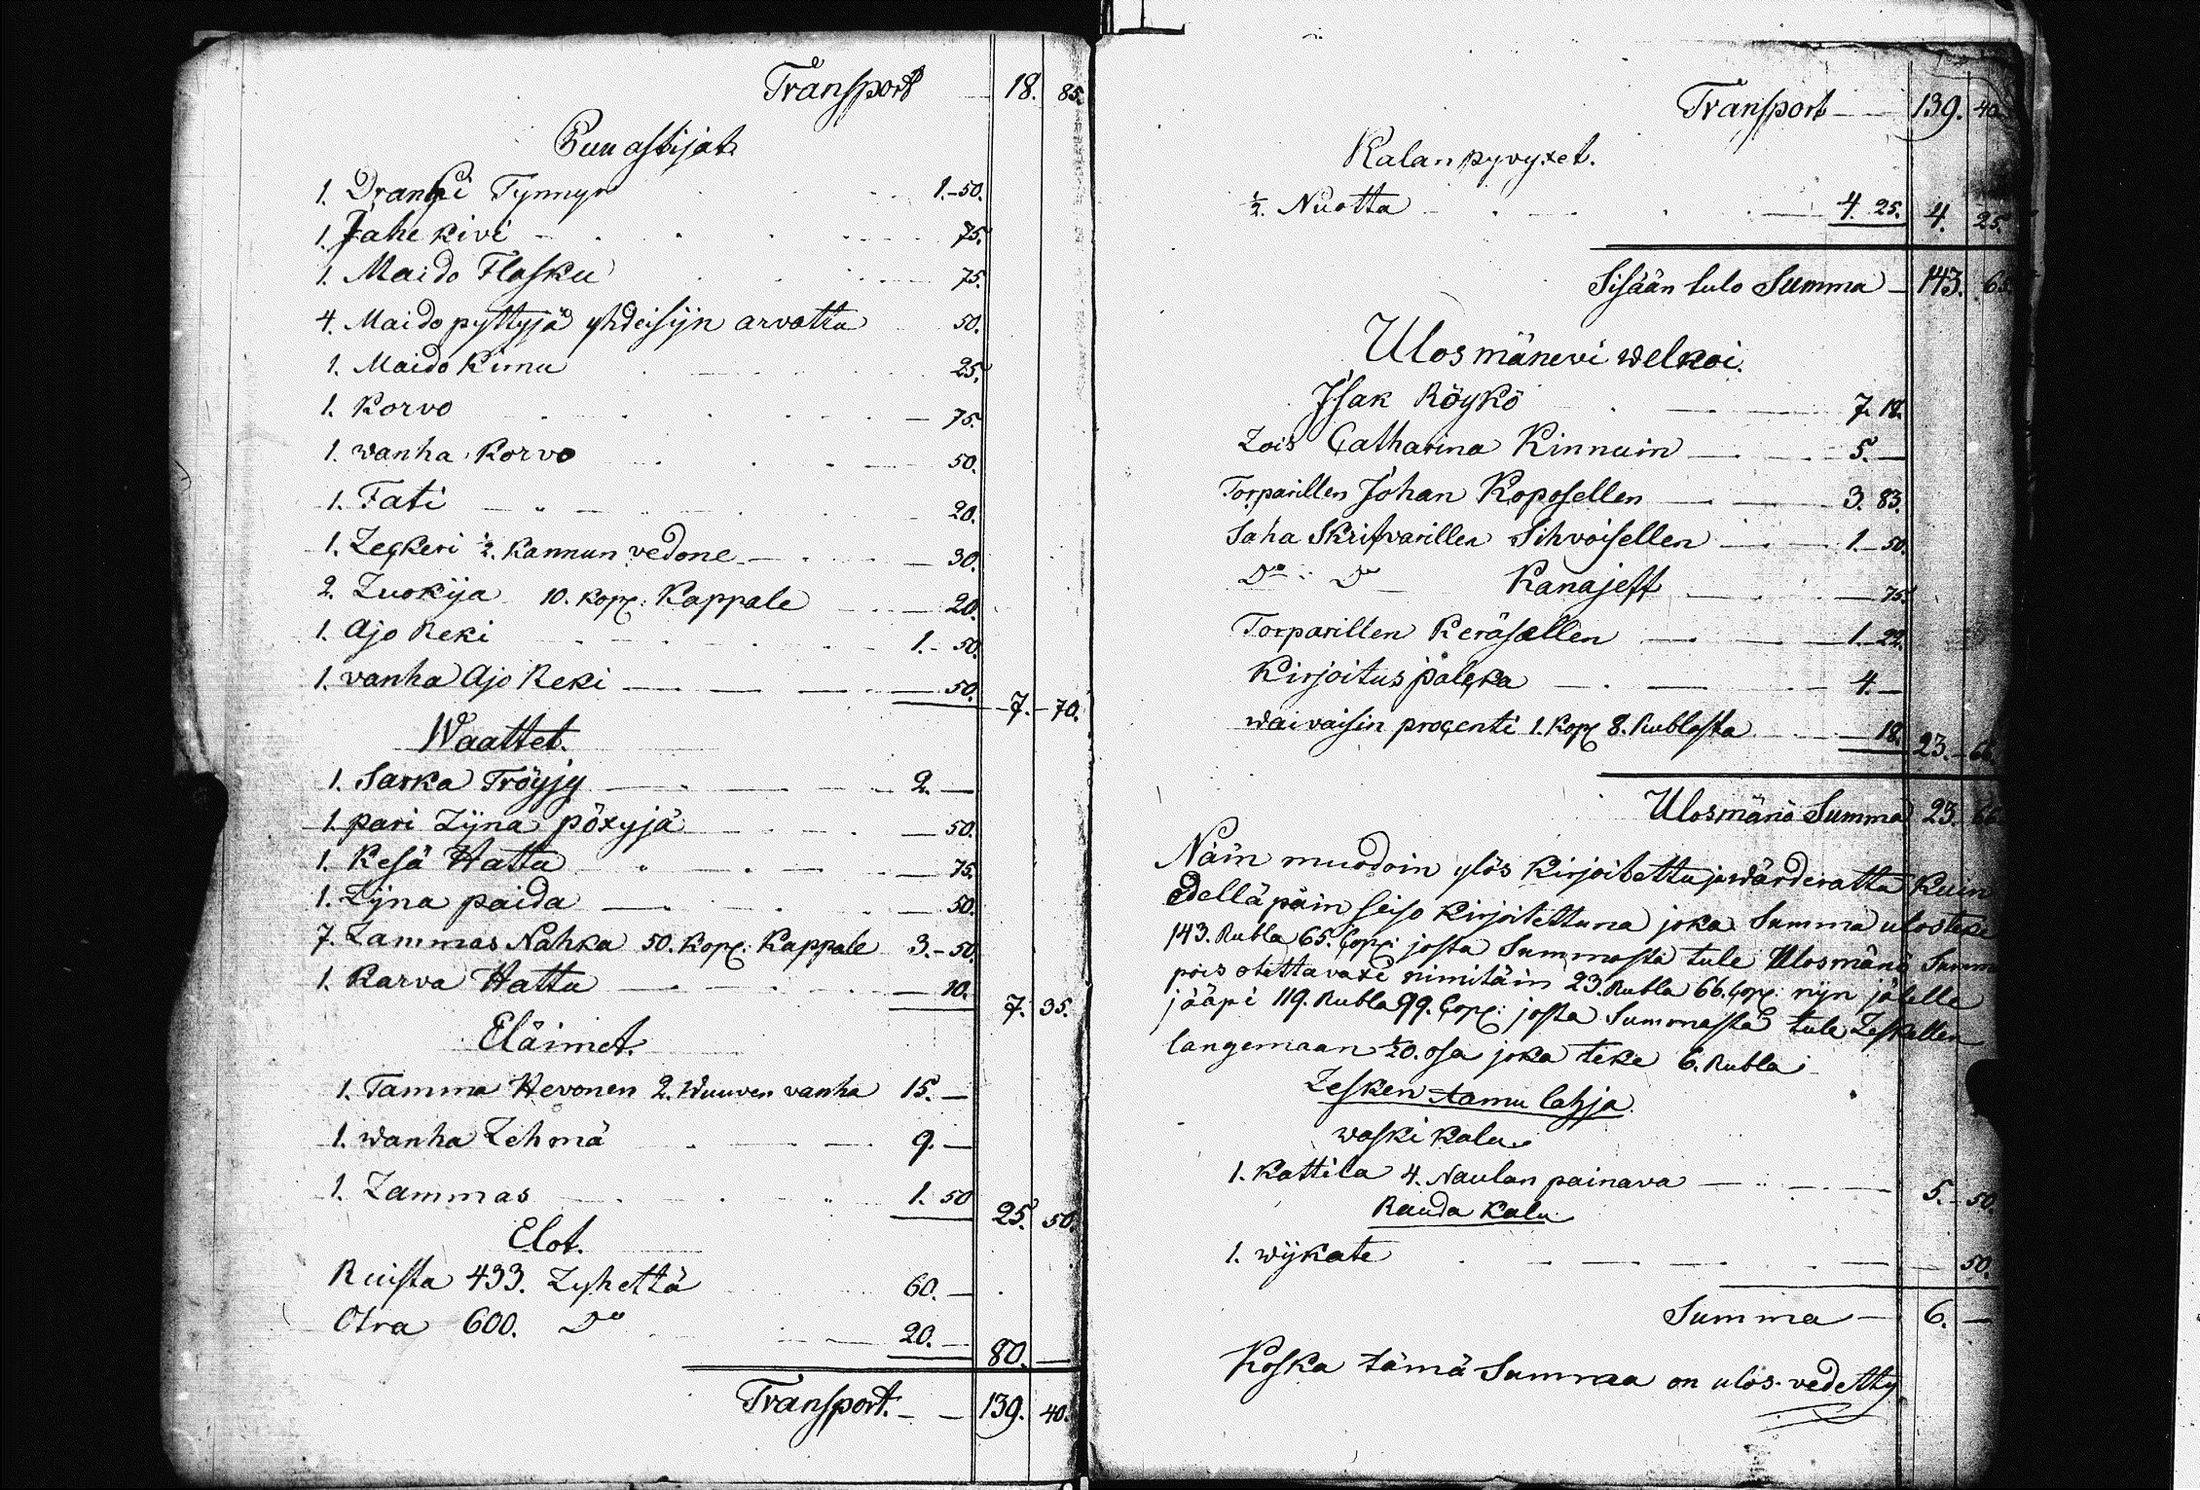 Transport 18. 85.
Puu astijat.
1. Dranki Tynnyr 1.-50.
1. Tahe kivi 75.
1. Maido Flasku 75.
4. Maido pyttyjä yhdeisijn arvattu 50.
1. Maido Kimu 25.
1. Korvo 75.
1. wanha Korvo 50.
1. Fati 20.
1. Leçkeri ½. Kannun vedone 30.
2. Luokija 10. Kopc: Kappale 20.
1. Ajo Reki 1.-50.
1. vanha Ajo Reki 50. 7.-70.
Waattet.
1. Sarka Tröyjy 2.—
1. pari Lijna pöxyjä 50.
1. Kesä Hattu 75.
1. Lijna paida 50.
7. Lammas Nahka 50. Kopc: Kappale 3.-50.
1. Karva Hattu 10. 7. 35.
Eläimet.
1. Tamma Hevonen 2. Wuuven vanha 15.—
1. wanha Lehmä 9.—
1. Lammas 1. 50 25. 50.
Elot.
Ruista 433. Lyhettä 60.—
Otra 600. Do 20.— 80.—
Transport. 139. 40.
Transport 139. 40.
Kalan pyvyxet.
½. Nuotta 4. 25. 4. 25.
Sisään tulo Summa 143. 65.
Ulosmänevi welkoi.
Isak Röykö 7. 18.
Lois Catharina Kinnuin 5.—
Torparillen Johan Koposellen 3. 83.
Saha Skrifvarillen Sihvoisellen 1.-50.
Do Do Kanajeff 75.
Torparillen Keräsellen 1.-22.
Kirjoitus palcka 4.—
waivaisin proçenti 1. Kopc 8. Rublasta 18. 23.-66.
Ulosmänö Summa 23. 66.
Näin muodoin ylös Kirjoitettu ja wärderattu Kuin
edellä päin seiso Kirjoitettuna joka Summa ulosteke
143. Rubla 65. Copc: josta Summasta tule Ulosmänö Summ
pois otettavaxi nimitäin 23. Rubla 66. Copc: nijn jälelle
jääpi 119. Rubla 99. Copc: josta Summasta tule Leskellen
langemaan 1/20. osa joka teke 6. Rubla
Lesken tamu lahja.
waski Kalu
1. Kattila 4. Naulan painava 5.-50.
Rauda Kalu
1. wijkate 50.
Summa 6.—
Koska tämä Summa on ulos vedetty